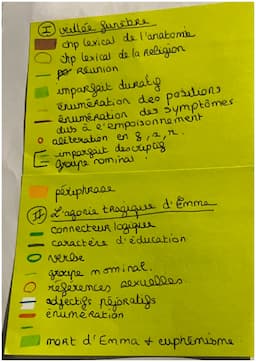 I veillée funèbre
chp lexical de l'anatomie
chp lexical de la religion
réunion
imparfait duratif
énumération des positions
énumération des symptômes
dûs à l'empoisonnement
alitération en
imparfait descriptif
groupe nominal
périphrase
II L'agonie tragique d'Emma
connecteur logique
caractère d'éducation
verbe
groupe nominal.
références sexuelles
adjectifs péjoratifs
énumération
mort d'Emma + euphémisme